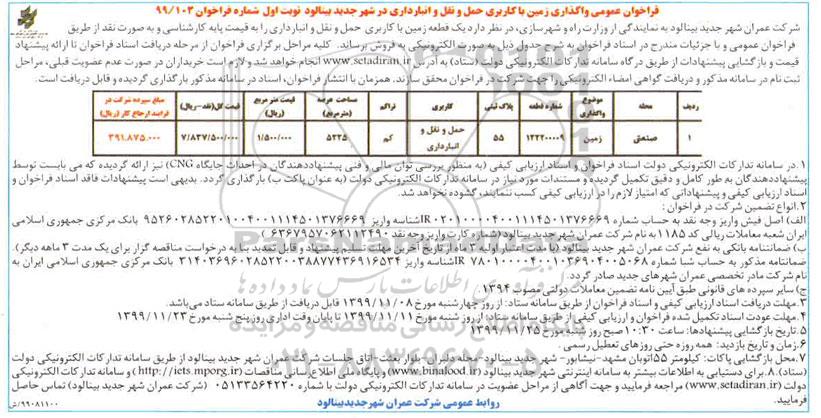 فراخوان عمومی واگذاری زمین با کاربری حمل و نقل و انبارداری در شهر جدید بینالود نوبت اول شماره فراخوان ۹۹/۱۰۳
شرکت عمران شهر جدید بینالود به نمایندگی از وزارت راه و شهرسازی، در نظر دارد یک قطعه زمین با کاربری حمل و نقل و انبارداری را به قیمت پایه کارشناسی و به صورت نقد از طریق
فراخوان عمومی و با جزئیات مندرج در اسناد فراخوان به شرح جدول ذیل به صورت الکترونیکی به فروش برساند. کلیه مراحل برگزاری فراخوان از مرحله دریافت اسناد فراخوان تا ارائه پیشنهاد
قیمت و بازگشایی پیشنهادات از طریق درگاه سامانه تدارکات الکترونیکی دولت (ستاد) به آدرس www.setadiran.ir انجام خواهد شد و لازم است خریداران در صورت عدم عضویت قبلی، مراحل
ثبت نام در سامانه مذکور و دریافت گواهی امضاء الکترونیکی را جهت شرکت در فراخوان محقق سازند. همزمان با انتشار فراخوان، اسناد در سامانه مذکور بارگذاری گردیده و قابل دریافت است.
ردیف محله موضوع واگذاری شماره قطعه پلاک ثبتی کاربری تراکم مساحت عرصه (مترمربع) قیمت متر مربع (ریال) قیمت کل(نقد-ریال) مبلغ سپرده شرکت در فرایند ارجاع کار (ریال)
۱ صنعتی زمین ۱۲۲۲۰۰۰۰۹ ۵۵ حمل و نقل و انبارداری کم ۵۲۲۵ ۱/۵۰۰/۰۰۰ ۷/۸۳۷/۵۰۰/۰۰۰ ۳۹۱.۸۷۵.۰۰۰
۱.در سامانه تدارکات الکترونیکی دولت اسناد فراخوان و اسناد ارزیابی کیفی (به منظور بررسی توان مالی و فنی پیشنهاددهندگان در احداث جایگاه CNG) نیز ارائه گردیده که می بایست توسط
پیشنهاددهندگان به طور کامل و دقیق تکمیل گردیده و مستندات مورد نیاز در سامانه تدارکات الکترونیکی دولت (به عنوان پاکت ب) بارگذاری گردد. بدیهی است پیشنهادات فاقد اسناد فراخوان و
اسناد ارزیابی کیفی و پیشنهاداتی که امتیاز لازم را در ارزیابی کیفی کسب ننمایند، گشوده نخواهد شد.
۲.انواع تضمین شرکت در فراخوان :
الف) اصل فیش واریز وجه نقد به حساب شماره IR۰۲۰۱۰۰۰۰۴۰۰۱۱۱۴۵۰۱۳۷۶۶۶۹ شناسه واریز ۹۵۲۶۰۲۸۵۲۲۰۱۰۰۴۰۰۱۱۱۴۵۰۱۳۷۶۶۶۹ بانک مرکزی جمهوری اسلامی
ایران شعبه معاملات ریالی کد ۱۱۸۵ به نام شرکت عمران شهر جدید بینالود
ب) ضمانتنامه بانکی به نفع شرکت عمران شهر جدید بینالود (با مدت اعتبار اولیه ۳ ماه از تاریخ آخرین مهلت تسلیم پیشنهاد و قابل تمدید بنا به درخواست مناقصه گزار برای یک مدت ۳ ماهه دیگر).
ضمانتنامه مذکور به حساب شبا شماره IR ۷۸۰۱۰۰۰۰۴۰۰۱۰۳۶۹۰۴۰۰۵۰۶۸ شناسه واریز ۳۱۴۰۳۶۹۶۰۲۸۵۵۲۲۰۰۳۸۸۷۷۴۳۶۹۱۶۵۳۴ بانک مرکزی جمهوری اسلامی ایران به
نام شرکت مادر تخصصی عمران شهرهای جدید صادر گردد.
ج) سایر سپرده های قانونی طبق آیین نامه تضمین معاملات دولتی مصوب ۱۳۹۴
۳.مهلت دریافت اسناد ارزیابی کیفی و اسناد فراخوان از طریق سامانه ستاد: از روز چهارشنبه مورخ ۱۳۹۹/۱۱/۰۸ قابل دریافت از طریق سامانه ستاد می‌باشد.
۴.مهلت عودت اسناد تکمیل شده فراخوان و ارزیابی کیفی از طریق سامانه ستاد: از روز شنبه مورخ ۱۳۹۹/۱۱/۱۱ تا پایان وقت اداری روز پنج شنبه مورخ ۱۳۹۹/۱۱/۲۳
۵.تاریخ بازگشایی پیشنهادها: ساعت ۱۰:۳۰ صبح روز شنبه مورخ ۱۳۹۹/۱۱/۲۵
۶.زمان و تاریخ بازدید: همه روزه حتی روزهای تعطیل رسمی .
۷.محل بازگشایی پاکات: کیلومتر ۵۵ اتوبان مشهد-نیشابور- شهر جدید بینالود-محله دلبران- بلوار بعثت-اتاق جلسات شرکت عمران شهر جدید بینالود از طریق سامانه تدارکات الکترونیکی دولت
(ستاد).۸.برای دستیابی به اطلاعات بیشتر به سامانه اینترنتی شهر جدید بینالود (www.binalood.ir) و پایگاه ملی اطلاع رسانی مناقصات (http://iets.mporg.ir) و سامانه تدارکات الکترونیکی
دولت (www.setadiran.ir) مراجعه فرمایید و جهت آگاهی از مراحل عضویت در سامانه تدارکات الکترونیکی دولت با شماره ۰۵۱۳۳۵۶۴۲۲۰ (شرکت عمران شهر جدید بینالود) تماس حاصل
فرمایید.
روابط عمومی شرکت عمران شهر جدید بینالود
۹۹۰۸۱۱۰۰/ش